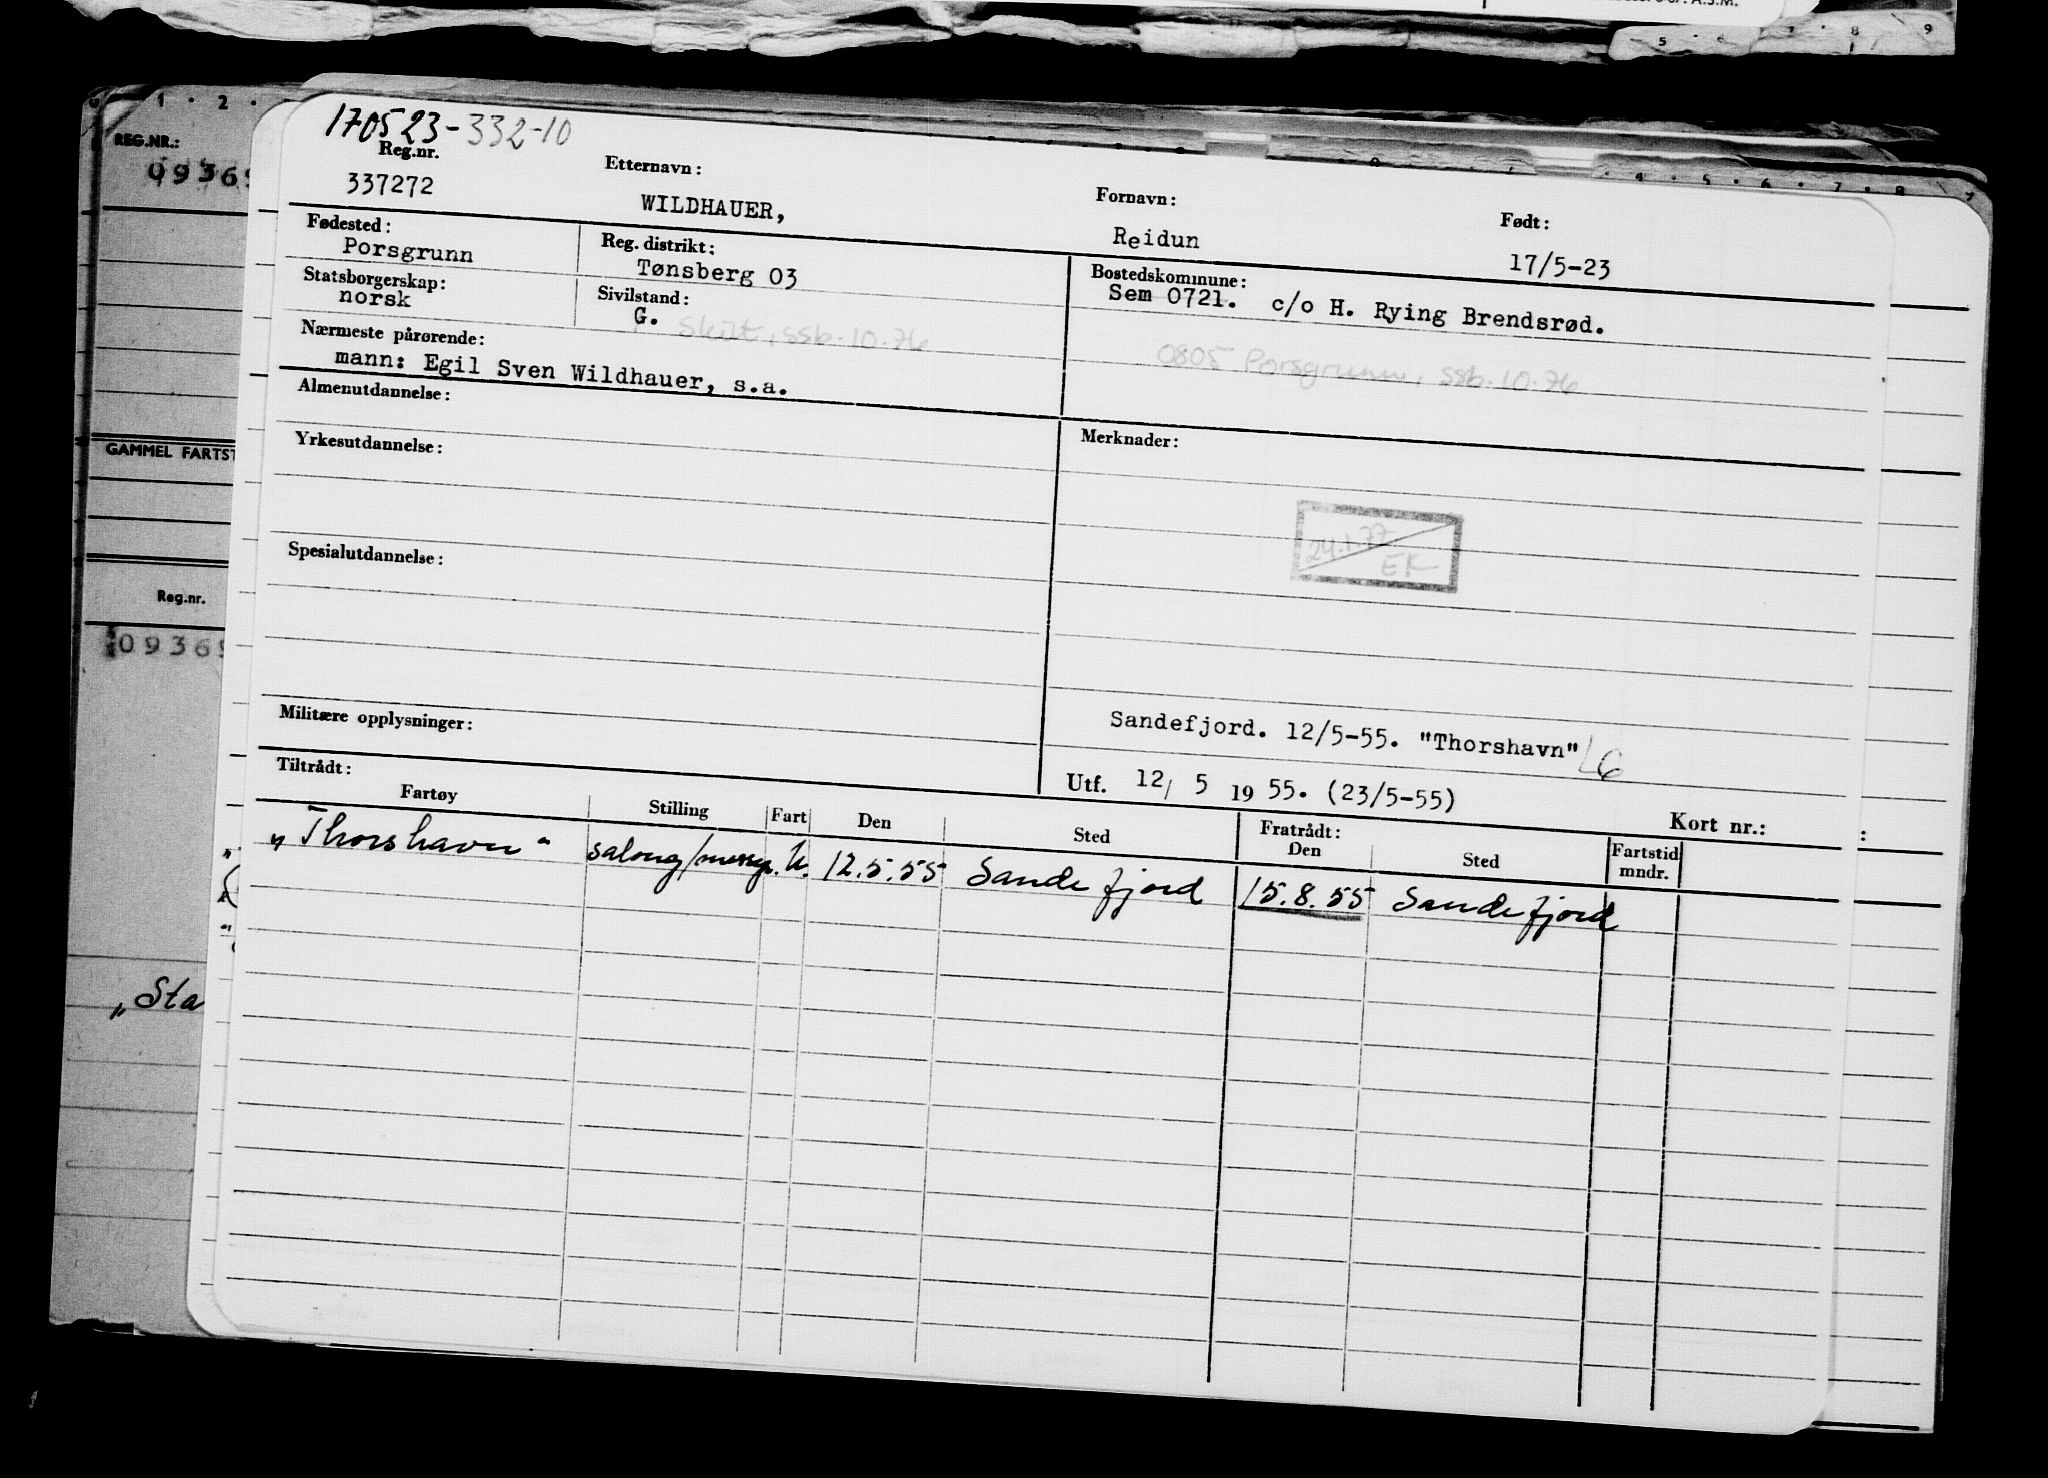 5 6 7 8 9
1 2
REG.NR.:
0936
GAMMEL FARTST
Reg.nr.
0936
„Sta
4 5 6 7 8
170523-332-10
Reg.nr. Etternavn: Fornavn: Født:
337272 WILDHAUER, Reidun 17/5-23
Fødested: Reg. distrikt: Bostedskommune:
Porsgrunn Tønsberg 03 Sem 0721. c/o H. Rying Brendsrød.
Statsborgerskap: Sivilstand:
norsk G. Skilt, ssb. 10.76
0805 Porsgrunn, ssb. 10.76
Nærmeste pårørende:
mann: Egil Sven Wildhauer, s.a.
Almenutdannelse:
Yrkesutdannelse: Merknader:
24.1.77
EK
Spesialutdannelse:
Militære opplysninger:
Sandefjord. 12/5-55. "Thorshavn"
Utf. 12/ 5 19 55. (23/5-55)
Tiltrådt: Kort nr.:
Fartøy Stilling Fart Den Sted Fratrådt: Den Sted Fartstid mndr.
„Thorshavn" 12.5.55 Sandefjord 15.8.55 Sandefjord